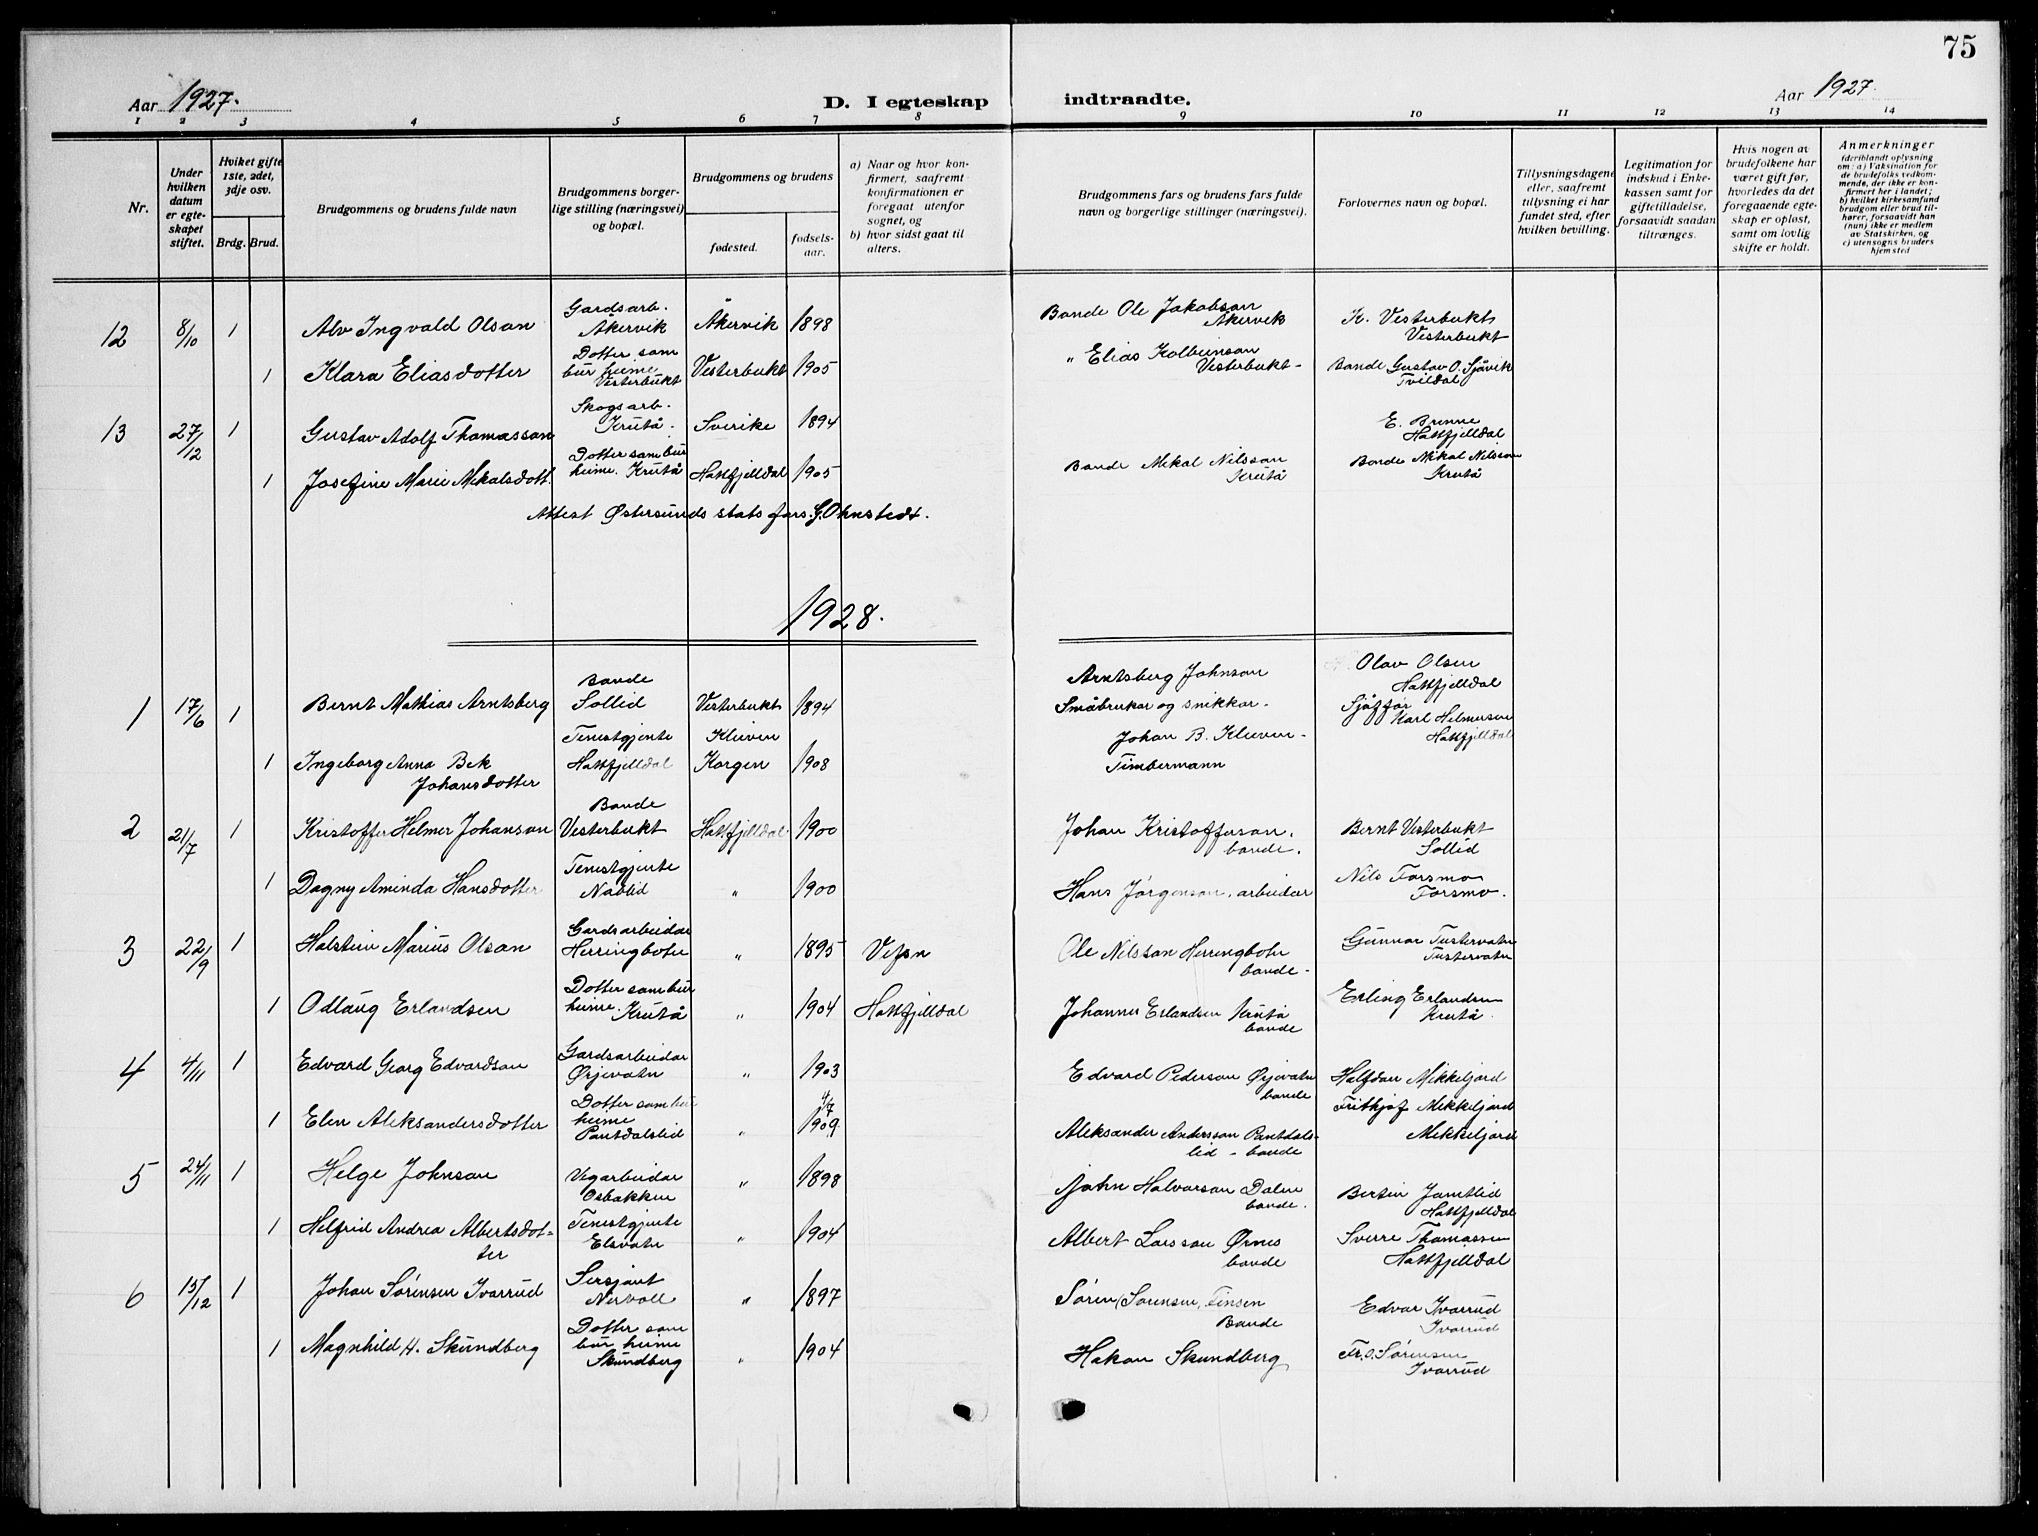 75
Aar 1927.
D. I egteskap indtraadte.
Aar 1927.
1 2 3 4 5 6 7 8 9 10 11 12 13 14
Nr.
Under hvilken datum er egteskapet stiftet.
Hvilket gifte 1ste, 2det, 3dje osv.
Brdg. Brud.
Brudgommens og brudens fulde navn
Brudgommens borgerlige stilling (næringsvei) og bopæl.
Brudgommens og brudens
fødested.
fødselsaar.
a) Naar og hvor konfirmert, saafremt konfirmationen er foregaat utenfor sognet, og
b) hvor sidst gaat til alters.
Brudgommens fars og brudens fars fulde navn og borgerlige stillinger (næringsvei).
Forlovernes navn og bopæl.
Tillysningsdagene eller, saafremt tillysning ei har fundet sted, efter hvilken bevilling.
Legitimation for indskud i Enkekassen samt for giftetilladelse, forsaavidt saadan tiltrænges.
Hvis nogen av brudefolkene har været gift før, hvorledes da det foregaaende egteskap er opløst, samt om lovlig skifte er holdt.
Anmerkninger
(deriblandt oplysning om: a) Vaksination for de brudefolks vedkommende, der ikke er konfirmert her i landet; b) hvilket kirkesamfund brudgom eller brud tilhører, forsaavidt han (hun) ikke er medlem av Statskirken, og c) utensogns bruders hjemsted
12 8/10 1 Alv Ingvald Olson Gardsarb. Åkervik Åkervik 1898 Bonde Ole Jakobson Åkervik K. Vesterbukt Vesterbukt
1 Klara Eliasdotter Dotter som bur heime Vesterbukt Vesterbukt 1905 " Elias Kolbeinson Vesterbukt - Bonde Gustav O. Sjåvik Tvildal
13 27/12 1 Gustav Adolf Thomasson Skogsarb. Krutå. Sverike 1894 E. Brenne Hattfjelldal
1 Josefine Marie Mikalsdott. Dotter som bur heime. Krutå Hattfjelldal 1905 Bonde Mikal Nilsson Krutå Bonde Mikal Nilsson Krutå
Attest Østersunds stats førs. G. Ohnstedt.
1928.
1 17/6 1 Bernt Mathias Arntsberg Bonde Sollid Vesterbukt 1894 Arntsberg Johnson Småbrukar og snikkar. Olav Olsen Hattfjelldal
1 Ingeborg Anna Bek Johansdotter Tenestgjente Hattfjelldal Kleiven Korgen 1908 Johan B. Kleiven - Timbermann Sjåfør Karl Helmersen Hattfjelldal
2 21/7 1 Kristoffer Helmer Johanson Bonde Vesterbukt Hattfjelldal. 1900 Johan Kristofferson. bonde. Bernt Vesterbukt Sollid
1 Dagny Aminda Hansdotter Tenestgjente Nåblid " 1900 Hans Jørgenson. arbeidar Nils Forsmo Forsmo.
3 22/9 1 Halstein Marius Olson Gardsarbeidar Herringboten " 1895 Vefsn Ole Nilsson Herringboten bonde - Gunnar Tustervatn Tustervatn
1 Odlaug Erlandsen Dotter som bur heime. Krutå " 1904 Hattfjelldal Johannes Erlandsen Krutå bonde Erling Erlandsen Krutå.
4 4/11 1 Edvard Georg Edvardson Gardsarbeidar Ørjevatn " 1903 Edvard Pederson Ørjevatn bonde Halfdan Mikkeljord
1 Elen Aleksandersdotter Dotter som bur heime Pantdalslid " 4/7 1909 Aleksander Andersson Pantdalslid - bonde Frithjof Mikkeljord Mikkeljord
5 24/11 1 Helge Johnson Vegarbeidar Osbakken " 1898 John Halvorson Dalen bonde. Bertin Jamtlid Hattfjelldal
1 Helfrid Andrea Albertsdotter Tenestgjente Elsvatn " 1904 Albert Larsson Ørnes bonde Sverre Thomassen Hattfjelldal
6 15/12 1 Johan Sørensen Ivarrud Sersjant Nervoll " 1897 Søren Sørensen, Finsen Bonde Edvar Ivarrud Ivarrud
1 Magnhild H. Skundberg Dotter som bur heime Skundberg " 1904 Hakon Skundberg Fr. S. Sørensen Ivarrud